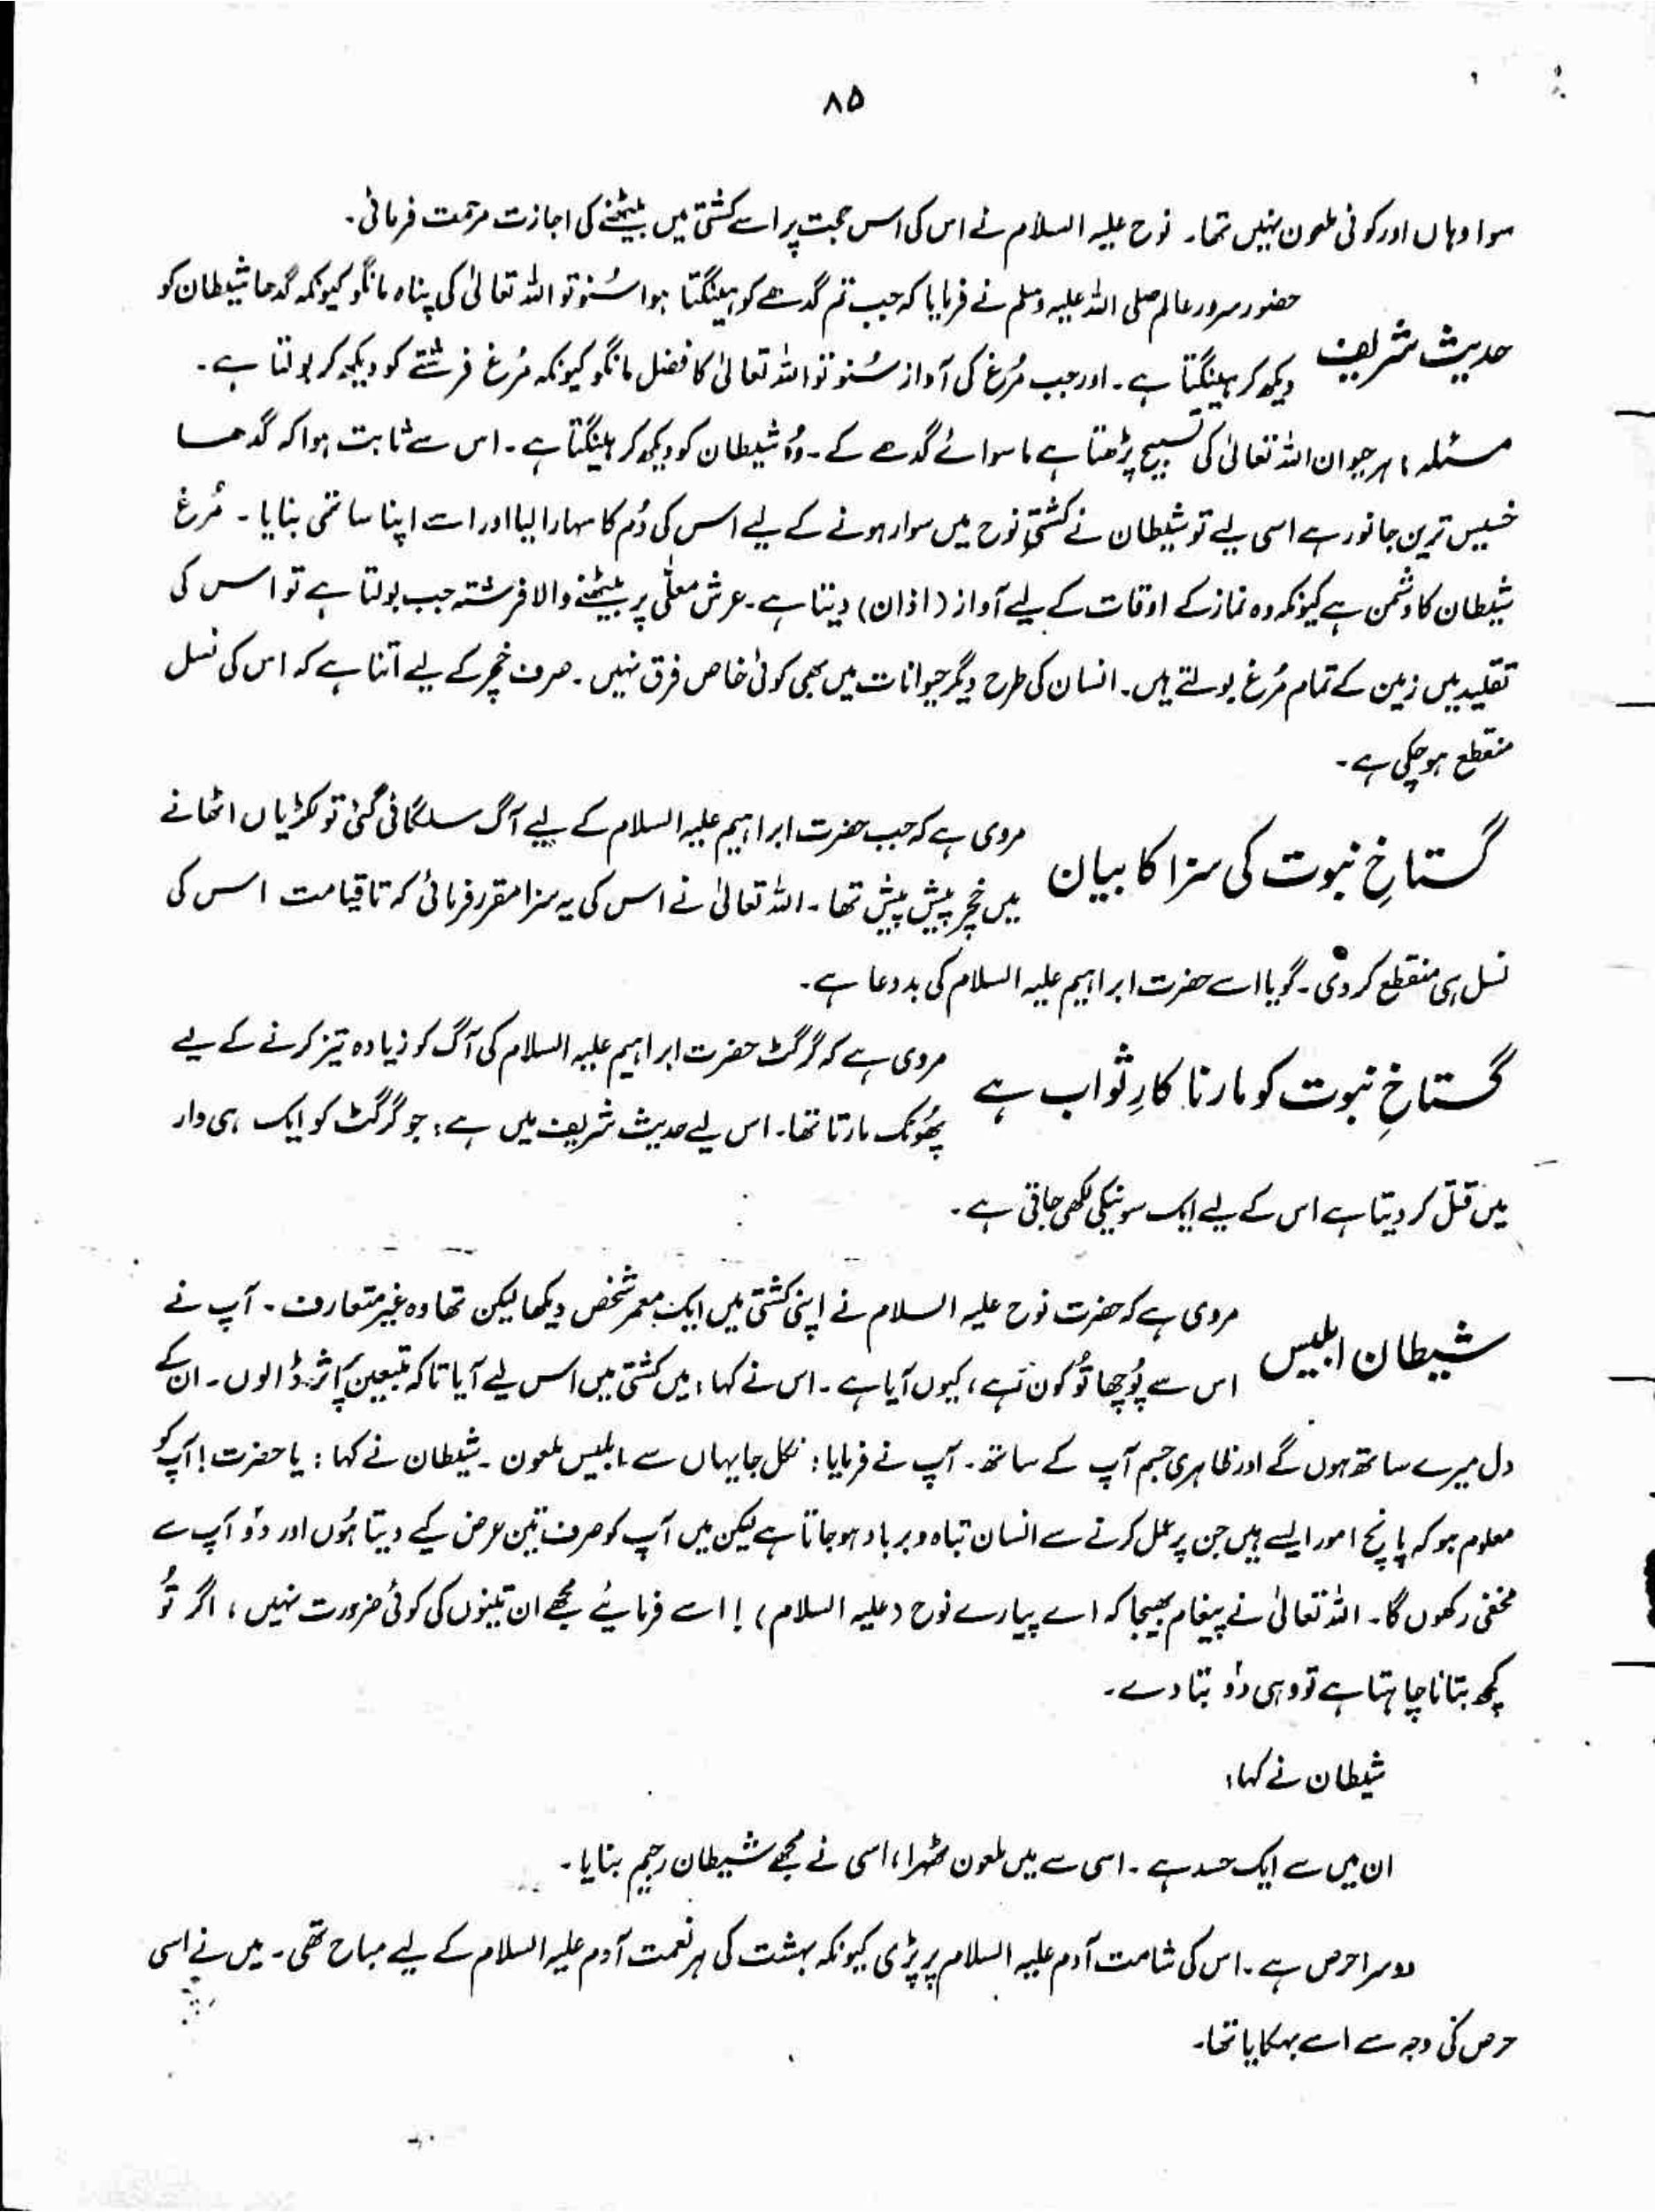 ۸۵
سوا وہاں اور کوئی ملعون نہیں تھا۔ نوح علیہ السلام نے اس کی اس حجت پر اسے کشتی میں بیٹھنے کی اجازت مرحمت فرمائی۔
حضور سرور عالم صلی اللہ علیہ وسلم نے فرمایا کہ جب تم گدھے کو ہینگتا ہوا سُنو تو اللہ تعالیٰ کی پناہ مانگو کیونکہ گدھا شیطان کو
حدیث شریف
دیکھ کر ہینگتا ہے۔ اور جب مُرغ کی آواز سُنو تو اللہ تعالیٰ کا فضل مانگو کیونکہ مُرغ فرشتے کو دیکھ کر بولتا ہے۔
مسئلہ : ہر حیوان اللہ تعالیٰ کی تسبیح پڑھتا ہے ماسوائے گدھے کے۔ وُہ شیطان کو دیکھ کر ہینگتا ہے۔ اس سے ثابت ہوا کہ گدھا
خسیس ترین جانور ہے اسی لیے تو شیطان نے کشتیِ نوح میں سوار ہونے کے لیے اس کی دُم کا سہارا لیا اور اسے اپنا ساتھی بنایا۔ مُرغ
شیطان کا دشمن ہے کیونکہ وہ نماز کے اوقات کے لیے آواز (اذان) دیتا ہے۔ عرش معلّٰی پر بیٹھنے والا فرشتہ جب بولتا ہے تو اس کی
تقلید میں زمین کے تمام مُرغ بولتے ہیں۔ انسان کی طرح دیگر حیوانات میں بھی کوئی خاص فرق نہیں۔ صرف خچر کے لیے اتنا ہے کہ اس کی نسل
منقطع ہو چکی ہے۔
مروی ہے کہ جب حضرت ابراہیم علیہ السلام کے لیے آگ سلگائی گئی تو لکڑیاں اٹھانے
گستاخِ نبوت کی سزا کا بیان
میں خچر پیش پیش تھا۔ اللہ تعالیٰ نے اس کی یہ سزا مقرر فرمائی کہ تا قیامت اس کی
نسل ہی منقطع کر دی۔ گویا اسے حضرت ابراہیم علیہ السلام کی بددعا ہے۔
مروی ہے کہ گرگٹ حضرت ابراہیم علیہ السلام کی آگ کو زیادہ تیز کرنے کے لیے
گستاخِ نبوت کو مارنا کارِ ثواب ہے
پُھونک مارتا تھا۔ اس لیے حدیث شریف میں ہے : جو گرگٹ کو ایک ہی وار
میں قتل کر دیتا ہے اس کے لیے ایک سو نیکی لکھی جاتی ہے۔
مروی ہے کہ حضرت نوح علیہ السلام نے اپنی کشتی میں ایک معمر شخص دیکھا لیکن تھا وہ غیر متعارف۔ آپ نے
شیطان ابلیس
اس سے پُوچھا تُو کون ہے، کیوں آیا ہے۔ اس نے کہا : میں کشتی میں اس لیے آیا تاکہ متبعین پر اثر ڈالوں۔ ان کے
دل میرے ساتھ ہوں گے اور ظاہری جسم آپ کے ساتھ۔ آپ نے فرمایا : نکل جا یہاں سے ابلیس ملعون۔ شیطان نے کہا : یا حضرت! آپ کو
معلوم ہو کہ پانچ امور ایسے ہیں جن پر عمل کرنے سے انسان تباہ و برباد ہو جاتا ہے لیکن میں آپ کو صرف تین عرض کیے دیتا ہُوں اور دو آپ سے
مخفی رکھوں گا۔ اللہ تعالیٰ نے پیغام بھیجا کہ اے پیارے نوح (علیہ السلام) ! اسے فرمائیے مجھے ان تینوں کی کوئی ضرورت نہیں ، اگر تُو
کچھ بتانا چاہتا ہے تو وہی دو بتا دے۔
شیطان نے کہا :
ان میں سے ایک حسد ہے۔ اسی سے میں ملعون ٹھہرا، اسی نے مجھے شیطان رجیم بنایا۔
دوسرا حرص ہے۔ اس کی شامت آدم علیہ السلام پر پڑی کیونکہ بہشت کی ہر نعمت آدم علیہ السلام کے لیے مباح تھی۔ میں نے اسی
حرص کی وجہ سے اسے بہکایا تھا۔